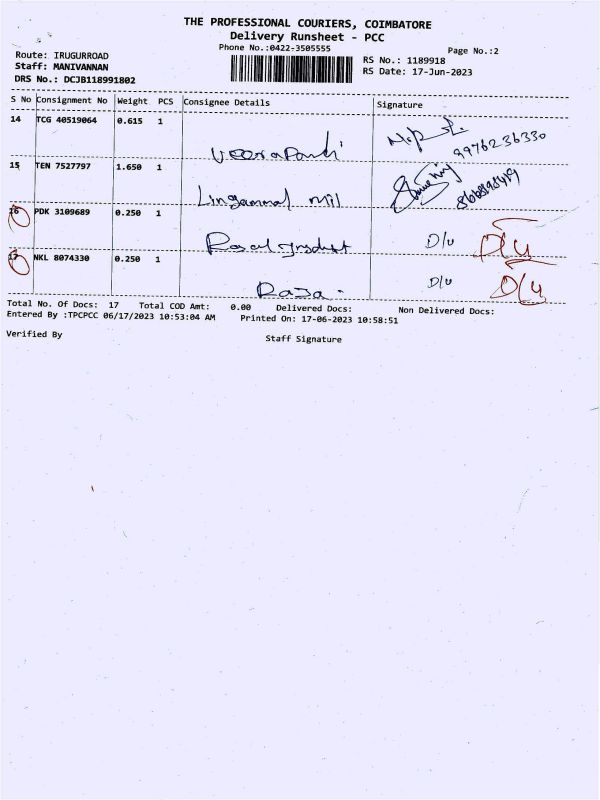 THE PROFESSIONAL COURIERS, COIMBATORE
Delivery Runsheet - PCC
Phone No.:0422-3505555
Page No.:2
Route: IRUGURROAD
Staff: MANIVANNAN
DRS No.: DCJB118991802
RS No.: 1189918
RS Date: 17-Jun-2023
S No Consignment No Weight PCS Consignee Details Signature
14 TCG 40519064 0.615 1
Veerapandi 9976236330
15 TEN 7527797 1.650 1
Lingammal mil
16 PDK 3109689 0.250 1
Royal product D/u D/u
17 NKL 8074330 0.250 1
Raja D/u D/u
Total No. Of Docs: 17 Total COD Amt: 0.00 Delivered Docs: Non Delivered Docs:
Entered By :TPCPCC 06/17/2023 10:53:04 AM Printed On: 17-06-2023 10:58:51
Verified By
Staff Signature